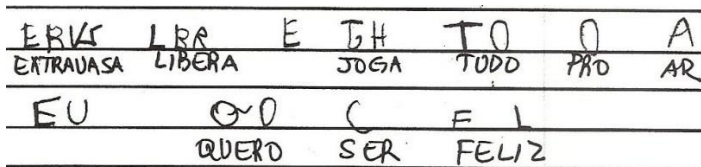 ERVS LBR E JGH TO O A
EXTRAVASA LIBERA JOGA TUDO PRO AR
EU O O C F L
QUERO SER FELIZ